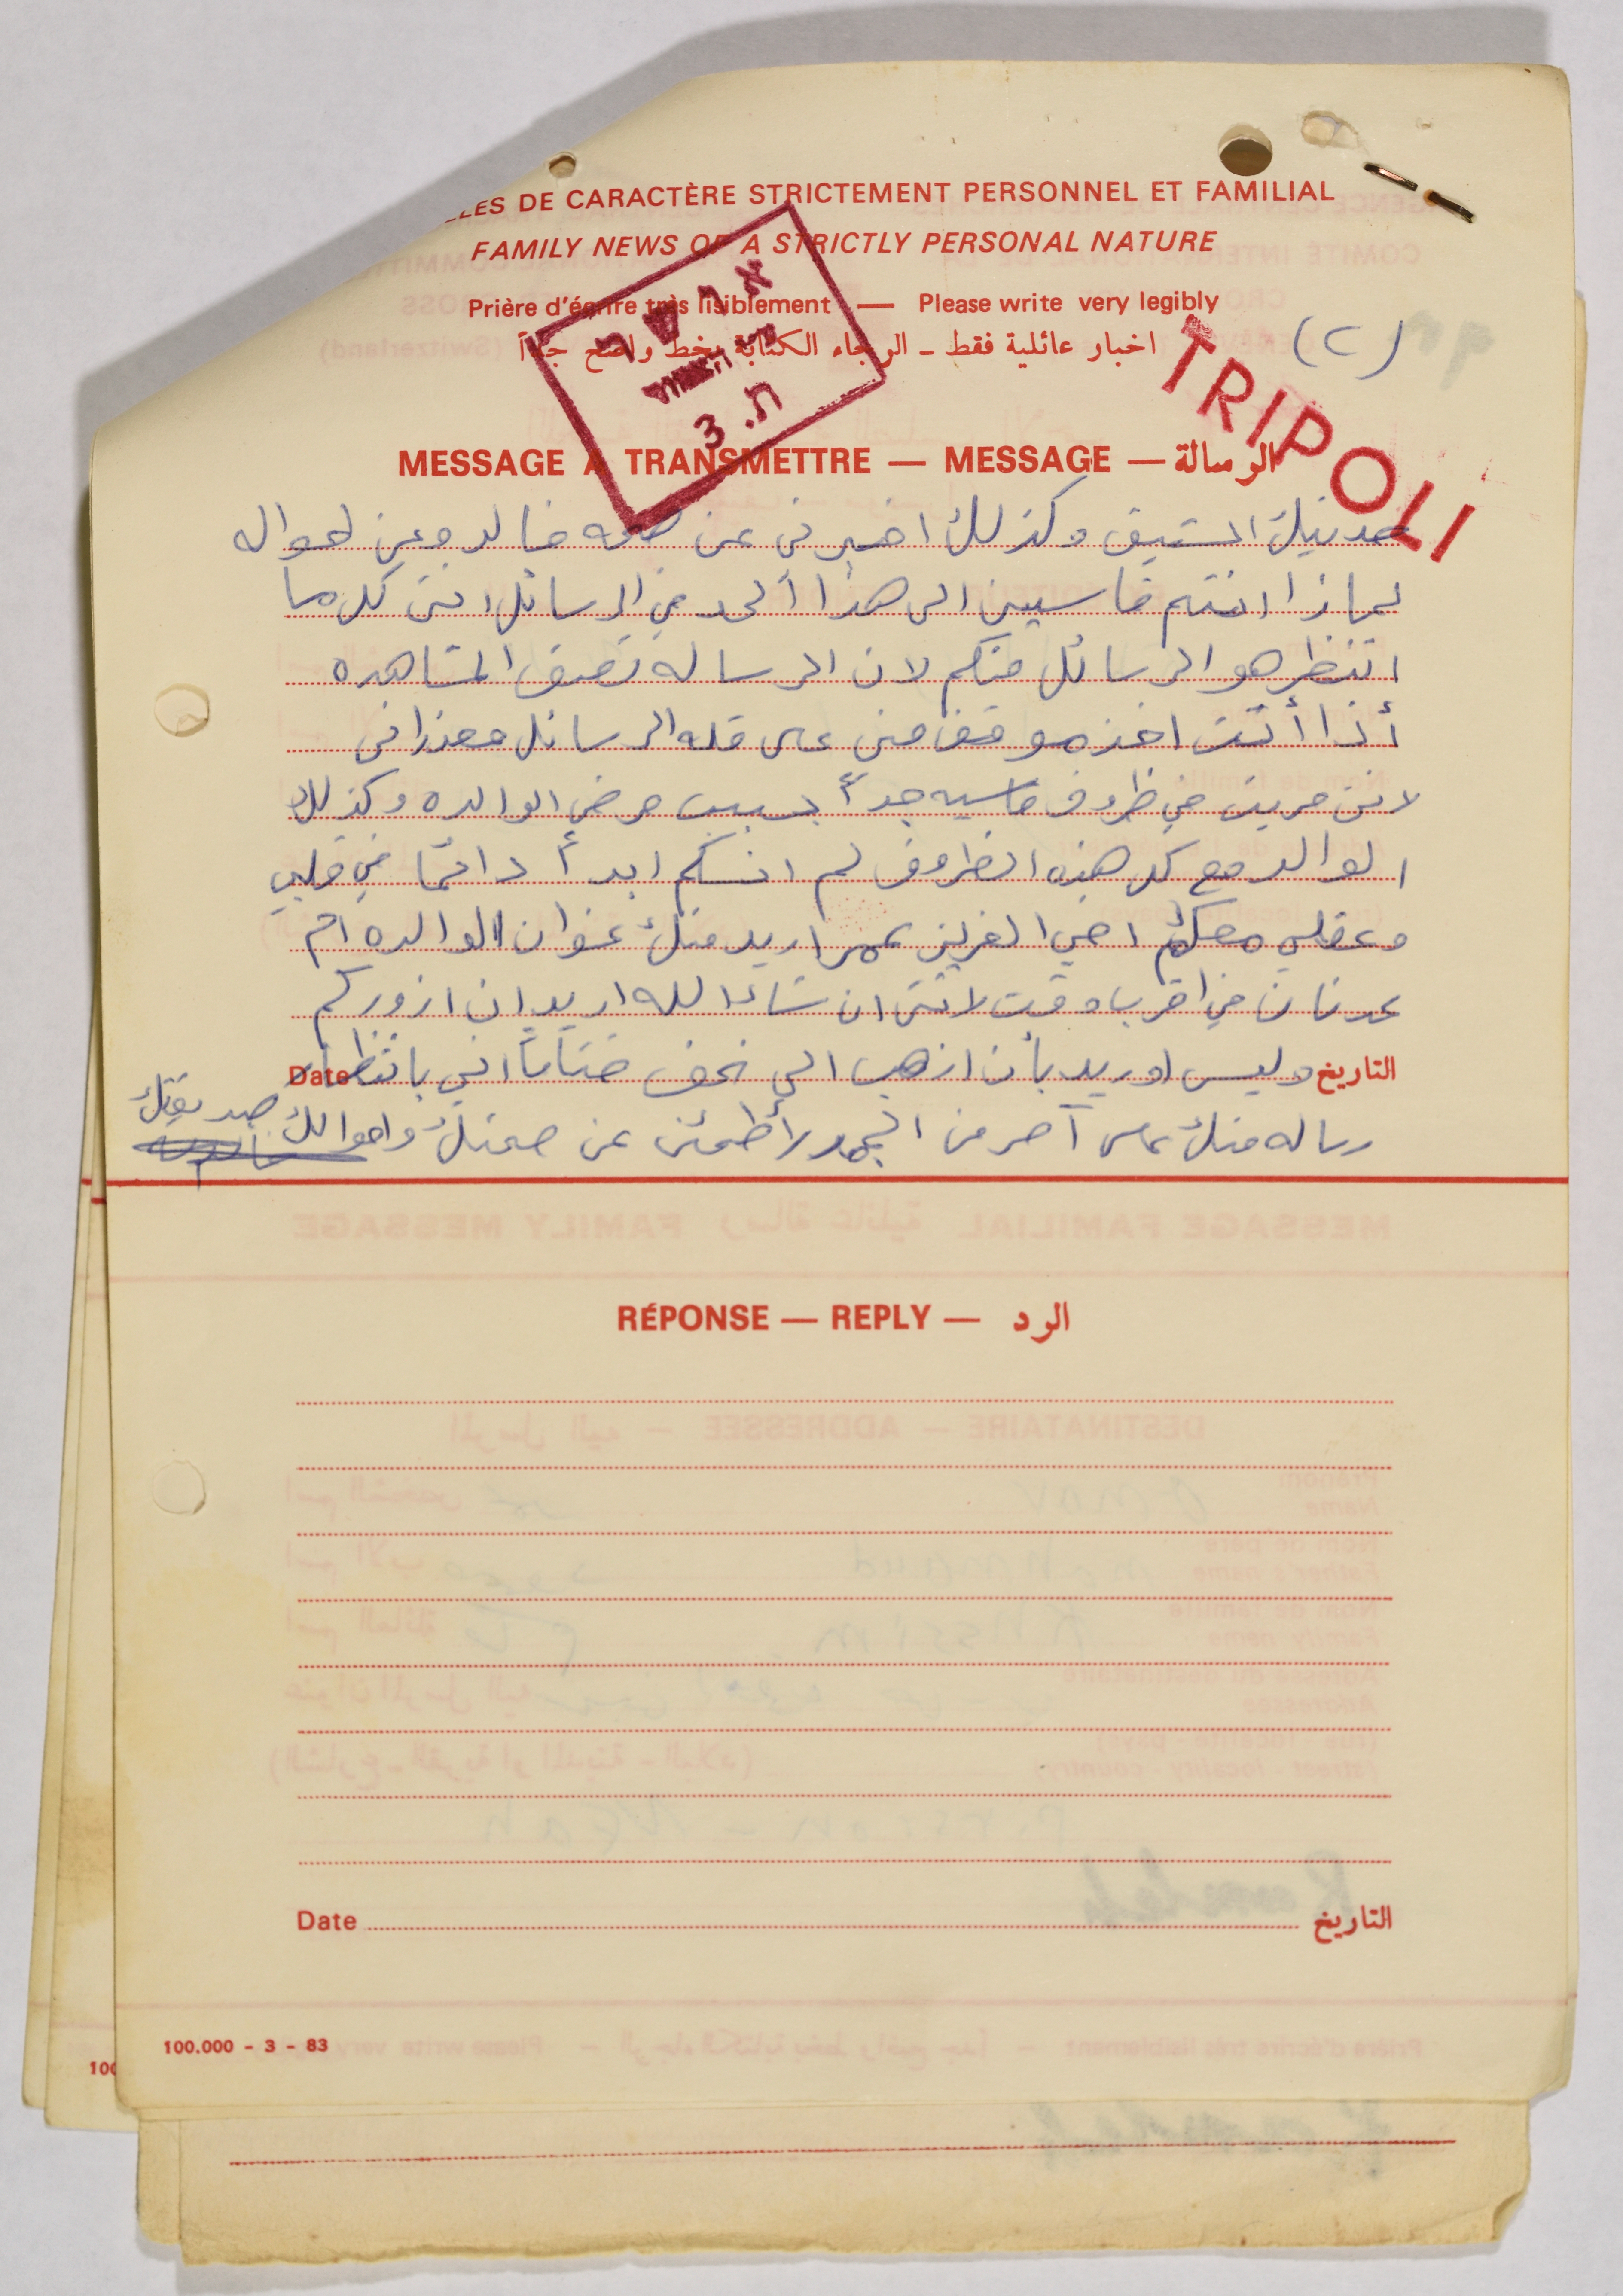 LLES DE CARACTÈRE STRICTEMENT PERSONNEL ET FAMILIAL
FAMILY NEWS OF A STRICTLY PERSONAL NATURE
Prière d'écrire très lisiblement — Please write very legibly
اخبار عائلية فقط ـ الرجاء الكتابة بخط واضح جداً
(٢)
TRIPOLI
ת. 3
MESSAGE À TRANSMETTRE — MESSAGE — الرسالة
وكذلك اخبرني عن خالد وعن احواله
لماذا انتم قاسيين الى هذا الحد في الرسائل انني كل ما
انتظر هو الرسائل منكم لان الرساله نصف المشاهده
أذا أنت اخذ موقف مني على قله الرسائل
لانني مريت في ظروف قاسيه جدأ بسبب مرض الوالده وكذلك
الوالد مع كل هذه الظروف لم انسكم ابدأ دائما في قلبي
وعقلي معكم اخي العزيز عمر اريد منك عنوان الوالده ام
عدنان في اقرب وقت لانني ان شاء الله اريد ان ازوركم
التاريخ وليس اوريد بأن اذهب الي ختاما اني بانتظار Date
رساله منك على آحر من الجمر لأطمئن عن صحتك واحوالك صديقتك
RÉPONSE — REPLY — الرد
Date التاريخ
100.000 - 3 - 83
100